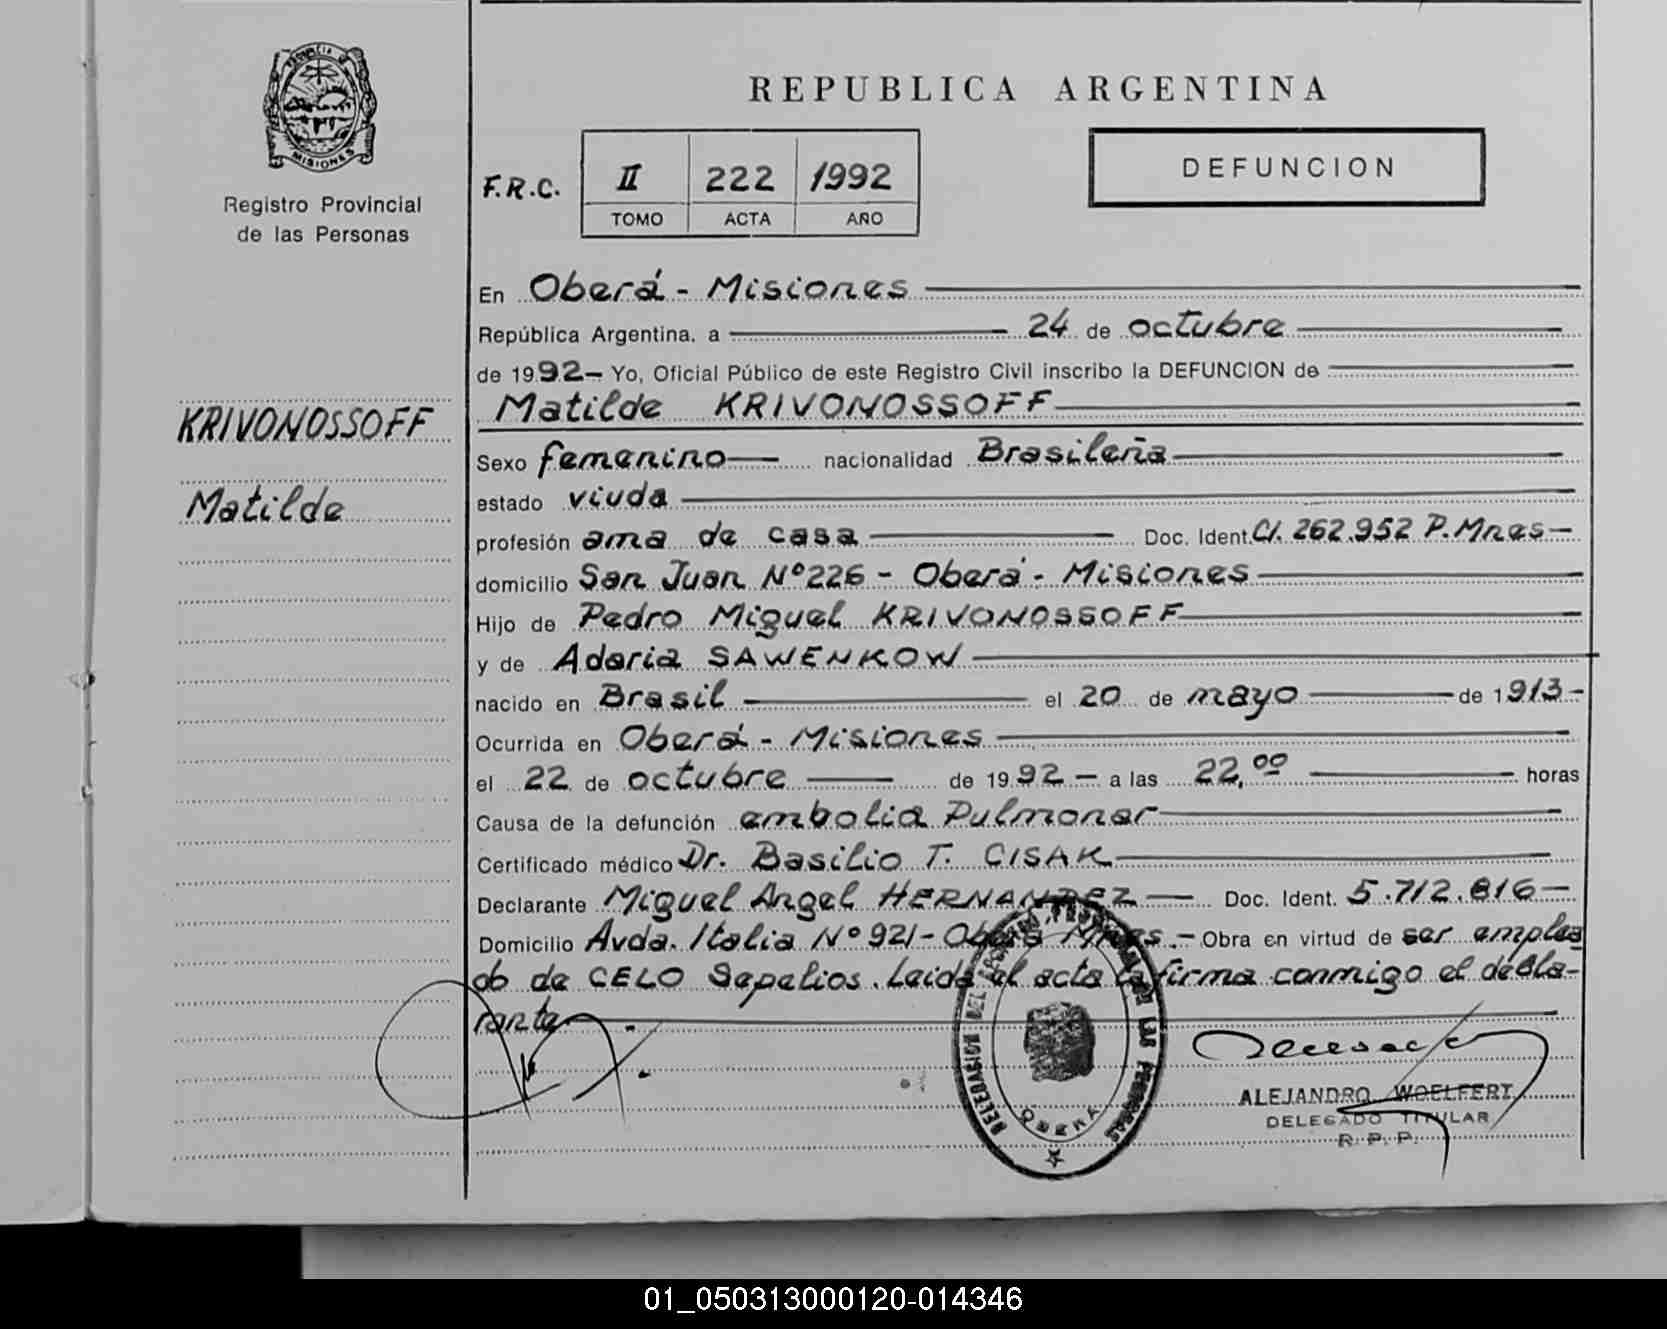 PROVINCIA DE
MISIONES
Registro Provincial
de las Personas
KRIVONOSSOFF
Matilde
REPUBLICA ARGENTINA
F.R.C.
II 222 1992
TOMO ACTA AÑO
DEFUNCION
En Oberá - Misiones
República Argentina, a 24 de octubre
de 1992 - Yo, Oficial Público de este Registro Civil inscribo la DEFUNCION de
Matilde KRIVONOSSOFF
Sexo femenino nacionalidad Brasileña
estado viuda
profesión ama de casa Doc. Ident. CI. 262.952 P. Mnes -
domicilio San Juan Nº 226 - Oberá - Misiones
Hijo de Pedro Miguel KRIVONOSSOFF
y de Adaria SAWENKOW
nacido en Brasil el 20 de mayo de 1913 -
Ocurrida en Oberá - Misiones
el 22 de octubre de 1992 - a las 22,00 horas
Causa de la defunción embolia Pulmonar
Certificado médico Dr. Basilio T. CISAK
Declarante Miguel Angel HERNANDEZ - Doc. Ident. 5.712.816 -
Domicilio Avda. Italia Nº 921 - Oberá Mnes. - Obra en virtud de ser emplea
do de CELO Sepelios. Leida el acta la firma conmigo el decla-
rante
DELEGACION DEL REGISTRO PROVINCIAL DE LAS PERSONAS
OBERA
ALEJANDRO WOELFERT
DELEGADO TITULAR
R. P. P.
01_050313000120-014346